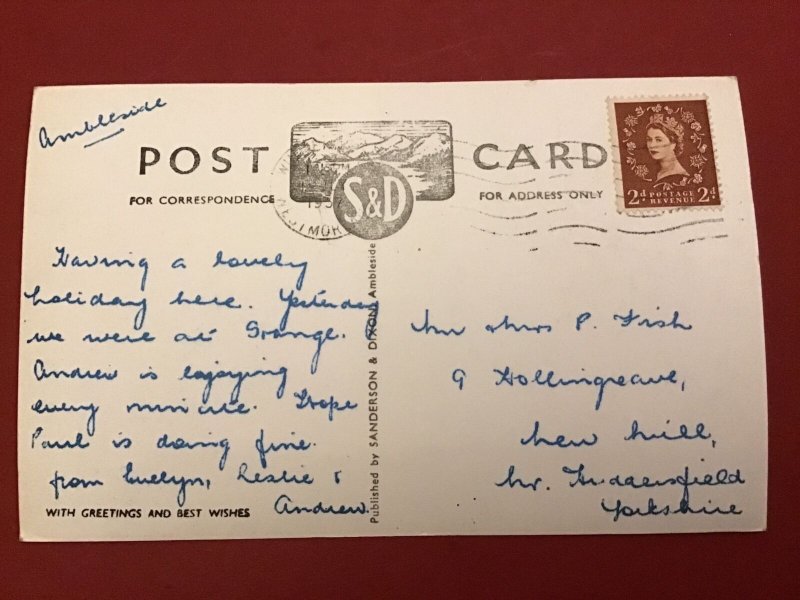 Ambleside
POST CARD
FOR CORRESPONDENCE
FOR ADDRESS ONLY
S&D
195
WESTMOR
2D POSTAGE 2D
REVENUE
Having a lovely
holiday here. Yesterday
we were at Grange.
Andrew is enjoying
every minute. Hope
Paul is doing fine.
from Evelyn, Leslie &
Andrew.
WITH GREETINGS AND BEST WISHES
Published by SANDERSON & DIXON, Ambleside
Mr & Mrs P. Fish
9 Hollingreave,
New Mill,
Nr. Huddersfield
Yorkshire